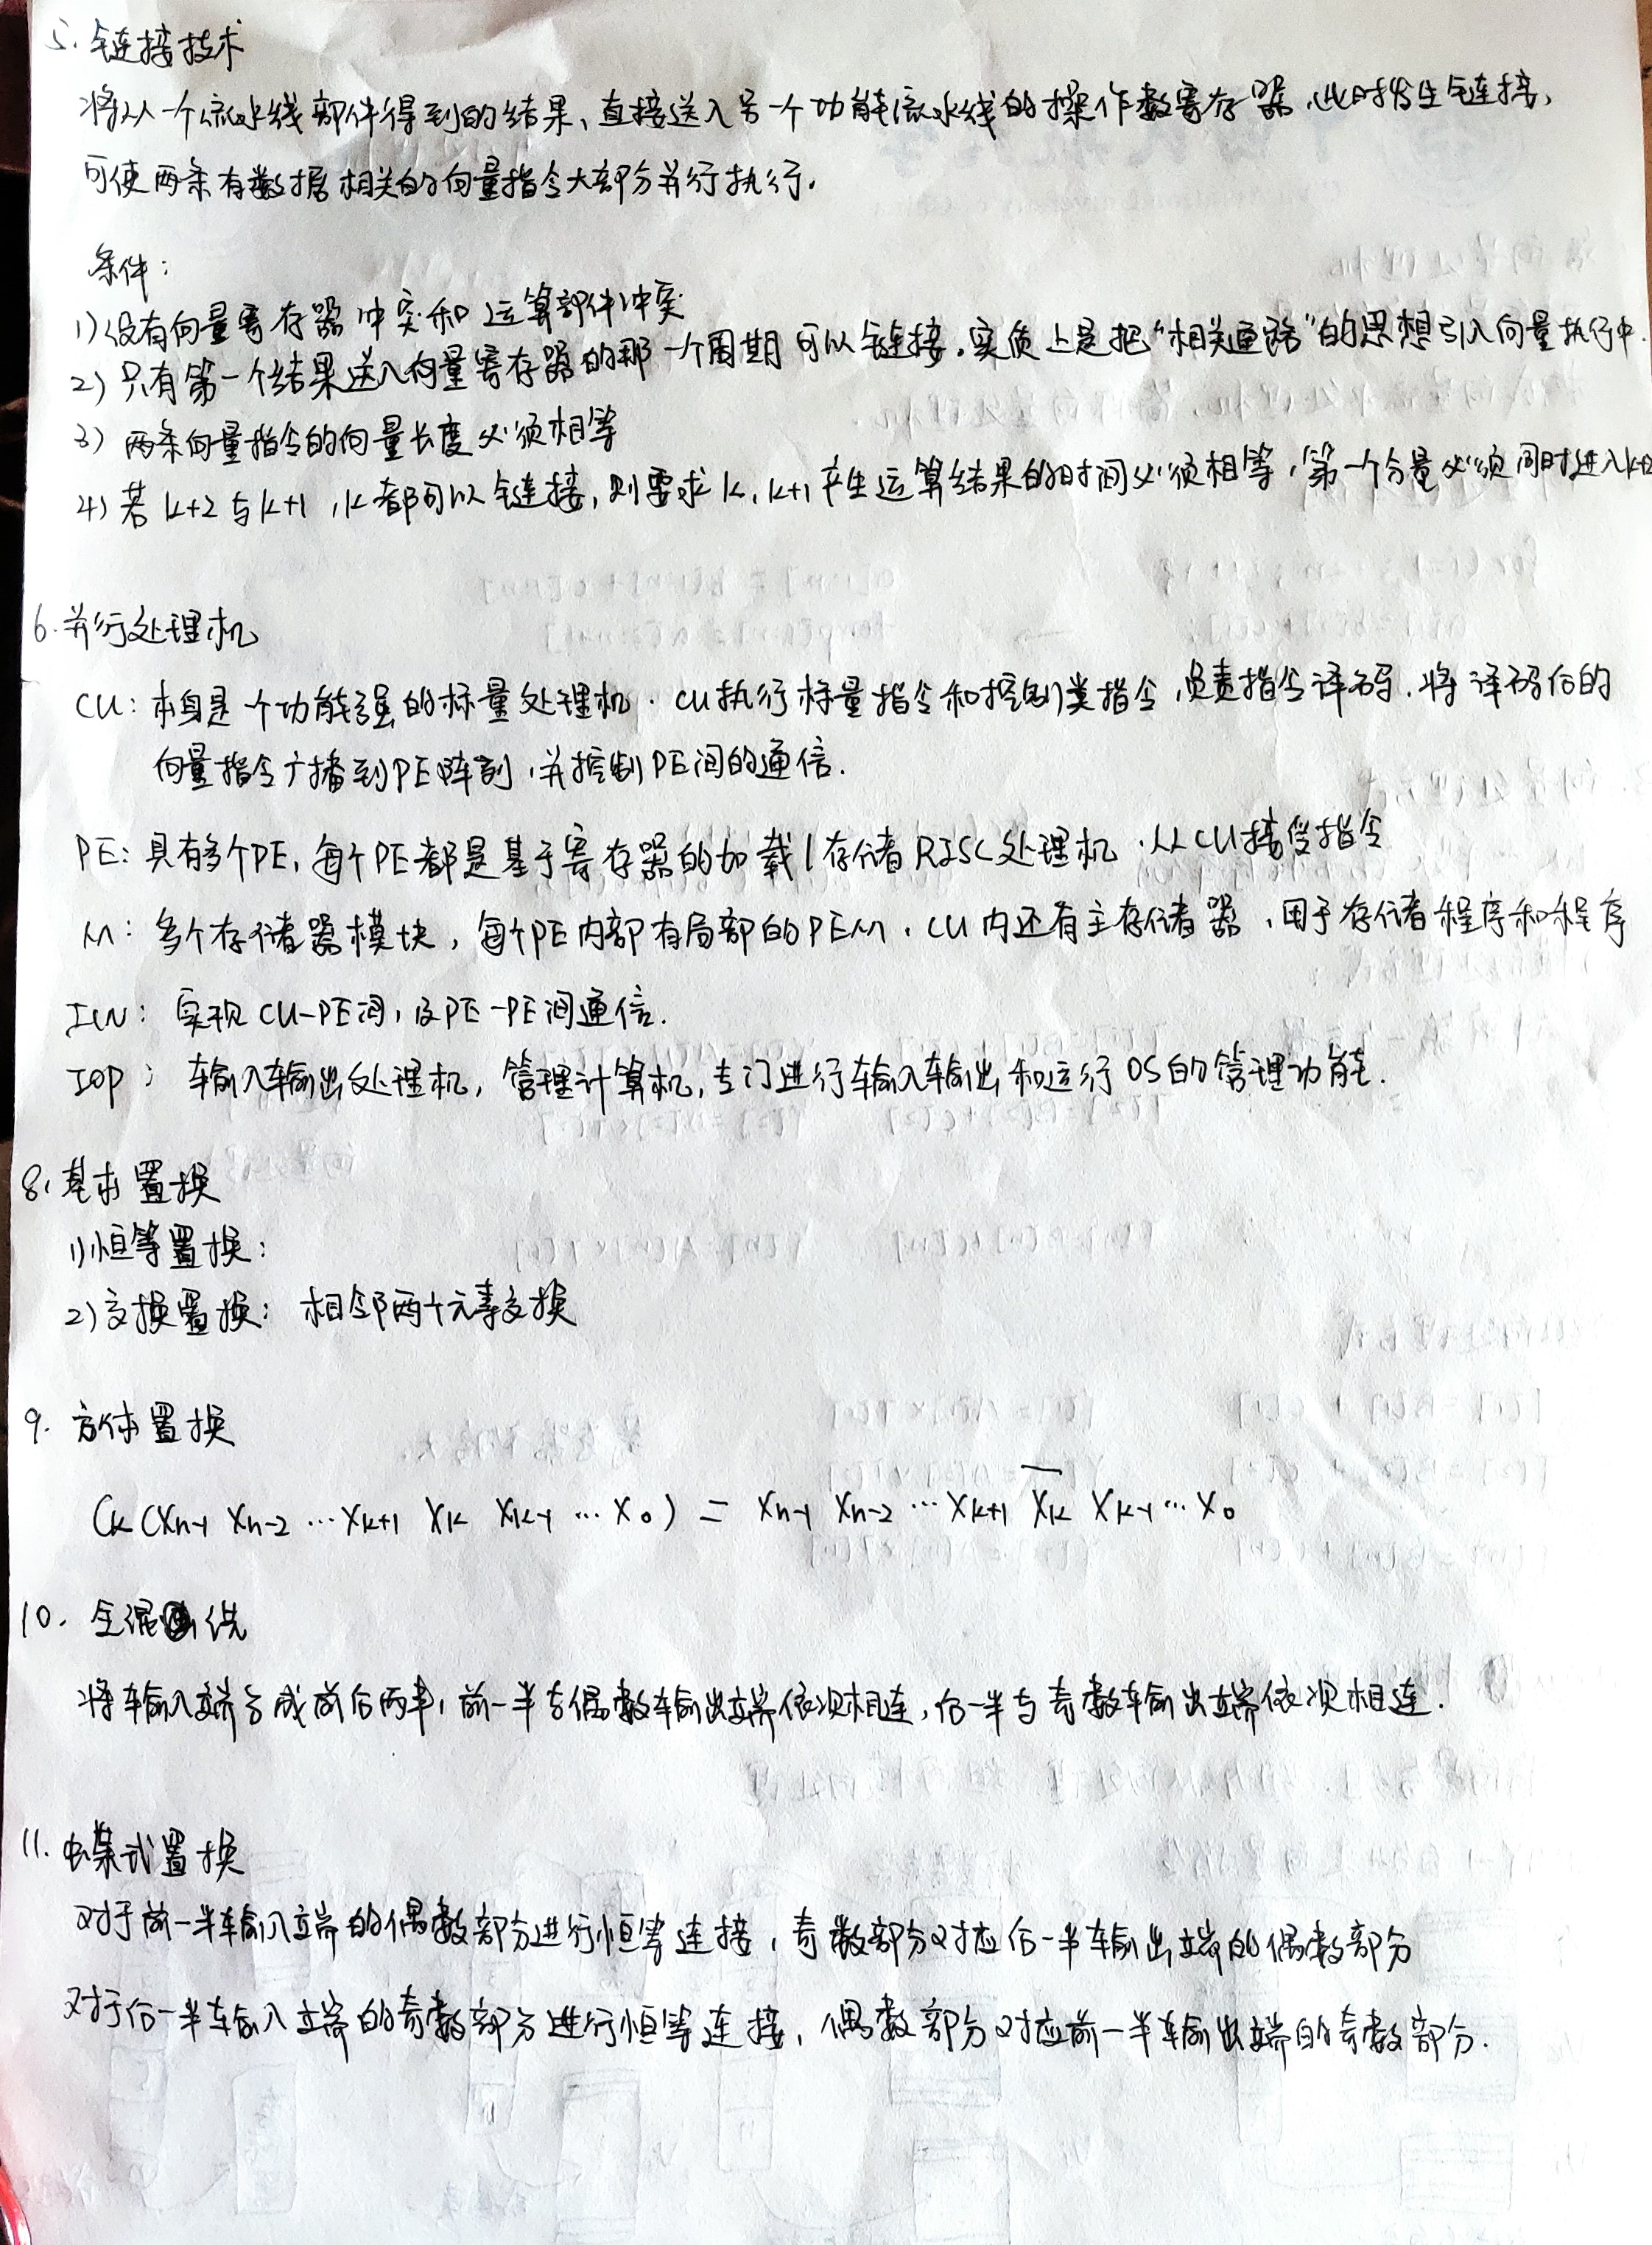 5. 链接技术
将从一个流水线部件得到的结果、直接送入另一个功能流水线的操作数寄存器,此时发生链接,
可使两条有数据相关的向量指令大部分并行执行.
条件:
1) 没有向量寄存器冲突和运算部件冲突
2) 只有第一个结果送入向量寄存器的那一个周期可以链接.实质上是把"相关通路"的思想引入向量执行中.
3) 两条向量指令的向量长度必须相等
4) 若k+2与k+1,k都可以链接,则要求k,k+1产生运算结果的时间必须相等,第一个分量必须同时进入k+2
6. 并行处理机
CU: 本身是一个功能强的标量处理机.CU执行标量指令和控制类指令,负责指令译码.将译码后的
向量指令广播到PE阵列,并控制PE间的通信.
PE: 具有多个PE,每个PE都是基于寄存器的加载/存储RISC处理机.从CU接受指令
M: 多个存储器模块,每个PE内部有局部的PEM.CU内还有主存储器,用于存储程序和程序
ICN: 实现CU-PE间,及PE-PE间通信.
IOP: 输入输出处理机,管理计算机,专门进行输入输出和运行OS的管理功能.
8. 基本置换
1) 恒等置换:
2) 交换置换: 相邻两个元素交换
9. 方体置换
Ck(Xn-1 Xn-2 ⋯Xk+1 Xk Xk-1 ⋯X0) = Xn-1 Xn-2 ⋯Xk+1 X̅k Xk-1⋯X0
10. 全混洗
将输入端分成前后两半,前一半与偶数输出端依次相连,后一半与奇数输出端依次相连.
11. 蝶式置换
对于前一半输入端的偶数部分进行恒等连接,奇数部分对应后一半输出端的偶数部分
对于后一半输入端的奇数部分进行恒等连接,偶数部分对应前一半输出端的奇数部分.